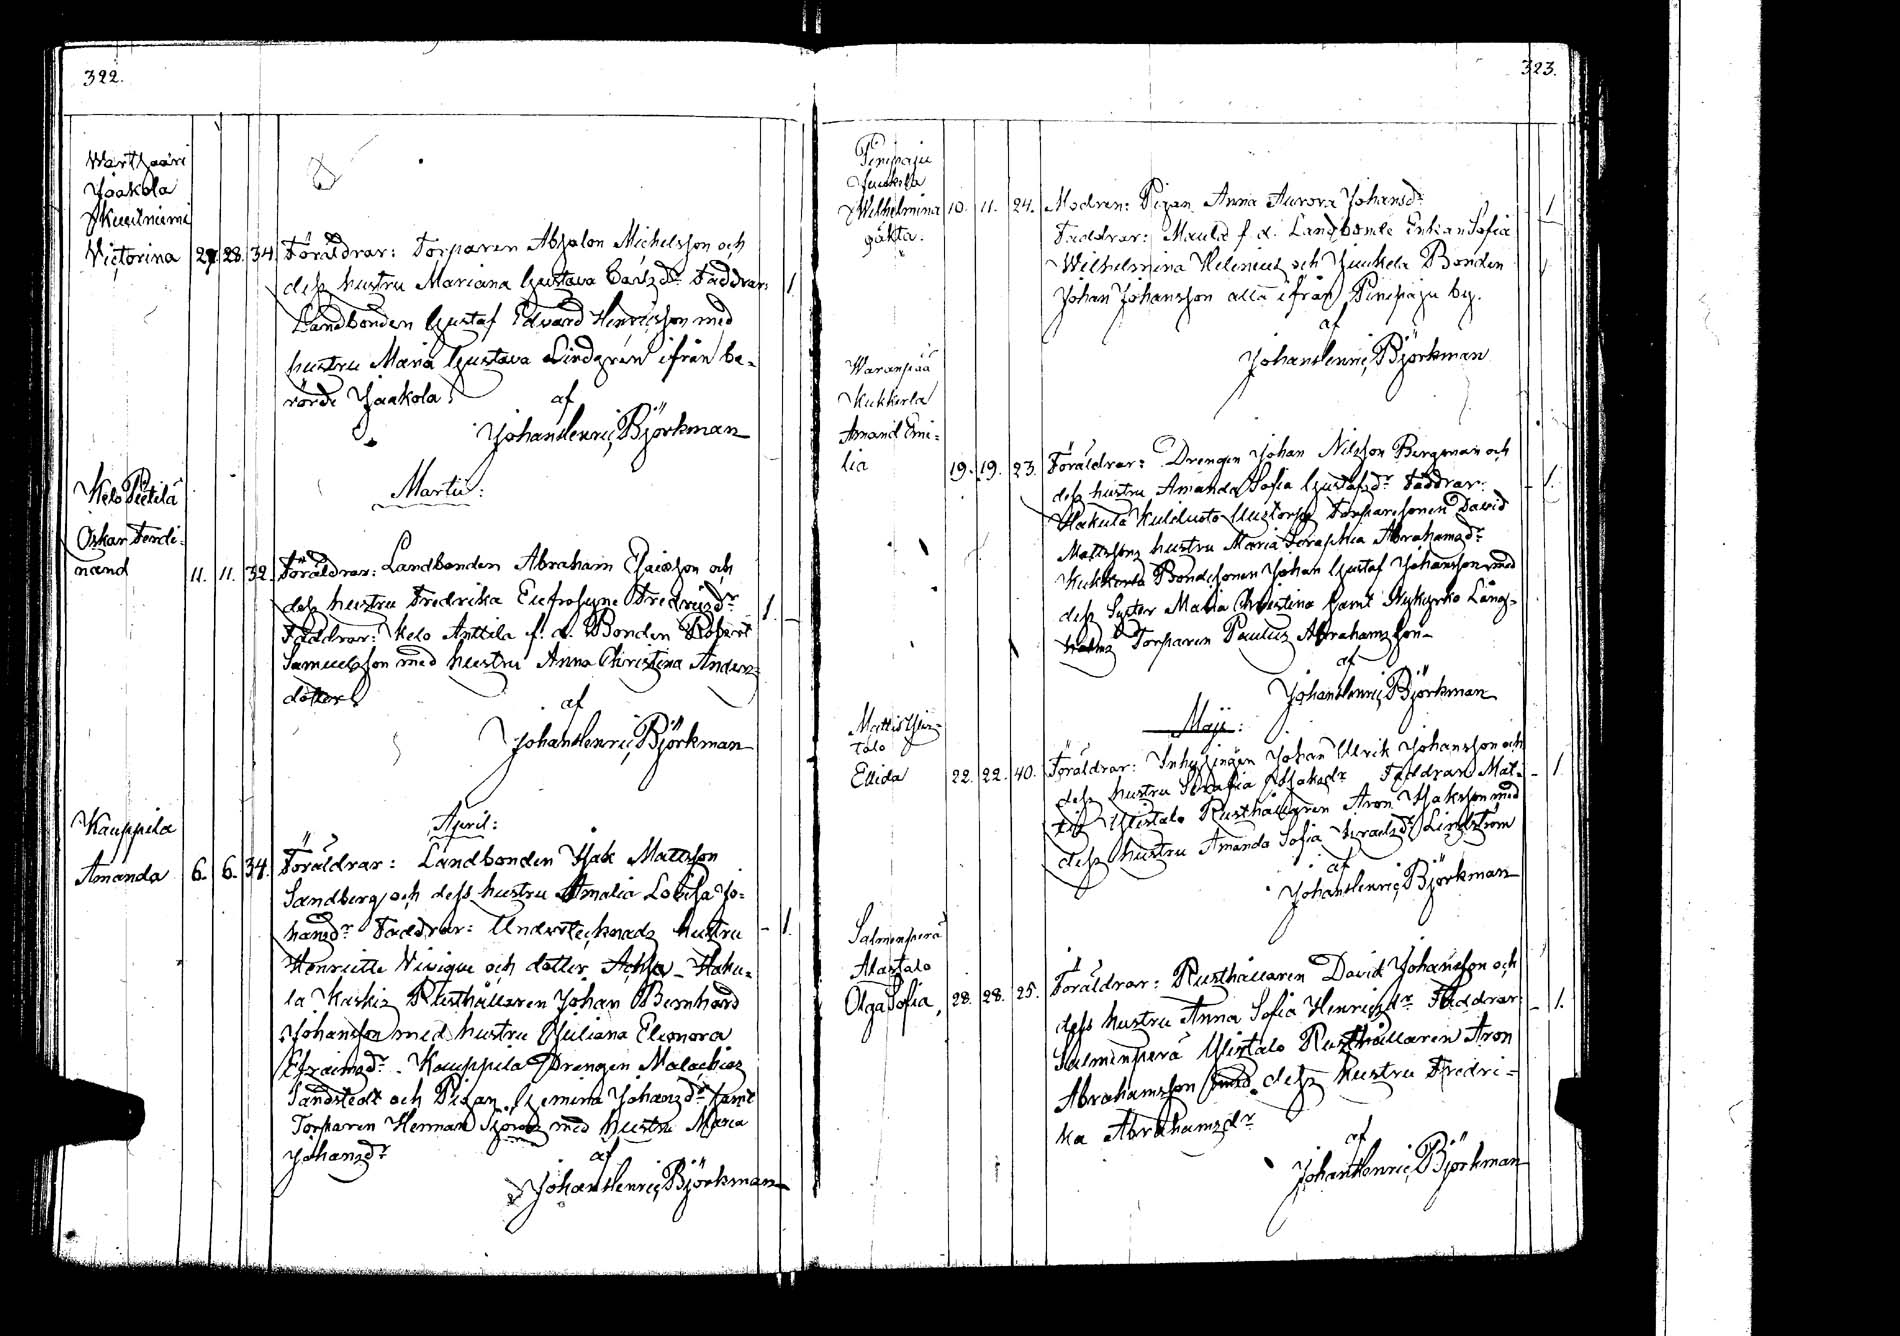 322.
Wartsaari
Jaakola
Kuulniemi
Victorina 27. 28. 34. Föräldrar: Torparen Absalon Michelsson och
dess hustru Mariana Gustava Carlsdr Faddrar:
Landbonden Gustaf Edvard Henricsson med
hustru Maria Gustava Lindgrén ifrån be-
rörde Jaakola. af 1
Johan Henric Björkman
Martii:
Kelo Pietilä
Oskar Ferdi-
nand 11. 11. 32. Föräldrar: Landbonden Abraham Esaiasson och
dess hustru Fredrika Eufrosyne Fredricsdr 1
Faddrar: Kelo Anttila f. d. Bonden Robert
Samuelsson med hustru Anna Christina Anders-
dotter. af
Johan Henric Björkman
April:
Kauppila
Amanda 6. 6. 34. Föräldrar: Landbonden Isak Mattsson
Sandberg och dess hustru Amalia Lovisa Jo-
hansdr Faddrar: Undertecknads hustru - 1.
Henriette Nivique och dotter Achsa - Haku-
la Kaskis Rusthållaren Johan Bernhard
Johansson med hustru Juliana Eleonora
Efraimsdr - Kauppila Drengen Malachias
Sandstedt och Pigan Gemina Johansdr samt
Torparen Herman Sjöroos med hustru Maria
Johansdr af
Johan Henric Björkman
323.
Pinipaju
Juukola
Wilhelmina 10. 11. 24. Modren: Pigan Anna Aurora Johansdr 1
oäkta. Faddrar: Maula f. d. Landbonde Enkan Sofia
Wilhelmina Helenius och Juukela Bonden
Johan Johansson alla ifrån Pinipaju by.
af
Johan Henric Björkman
Waranpää
Kukkerla
Amand Emi-
lia 19. 19. 23. Föräldrar: Drengen Johan Nilsson Bergman och
dess hustru Amanda Sofia Gustafsdr Faddrar: - 1.
Hakula Torparesonen David
Mattssons hustru Maria Seraphia Abrahamsdr
Kukkerla Bondesonen Johan Gustaf Johansson med
dess Syster Maria Christina samt Nykyrko Lång-
holms Torparen Paulus Abrahamsson
af
Johan Henric Björkman
Maji:
Mattis Ylis-
talo
Elida 22. 22. 40. Föräldrar: Inhysingen Johan Ulrik Johansson och
dess hustru Serafia Isaksdr Faddrar: Mat- - 1
tis Ylistalo Rusthållaren Aron Isaksson med
dess hustru Amanda Sofia Israelsdr Lindström
af
Johan Henric Björkman
Salmenperä
Alastalo
Olga Sofia, 28. 28. 25. Föräldrar: Rusthållaren David Johansson och
dess hustru Anna Sofia Henricsdr Faddrar: - 1.
Salmenperä Ylistalo Rusthållaren Aron
Abrahamsson med dess hustru Fredri-
ka Abrahamsdr
af
Johan Henric Björkman